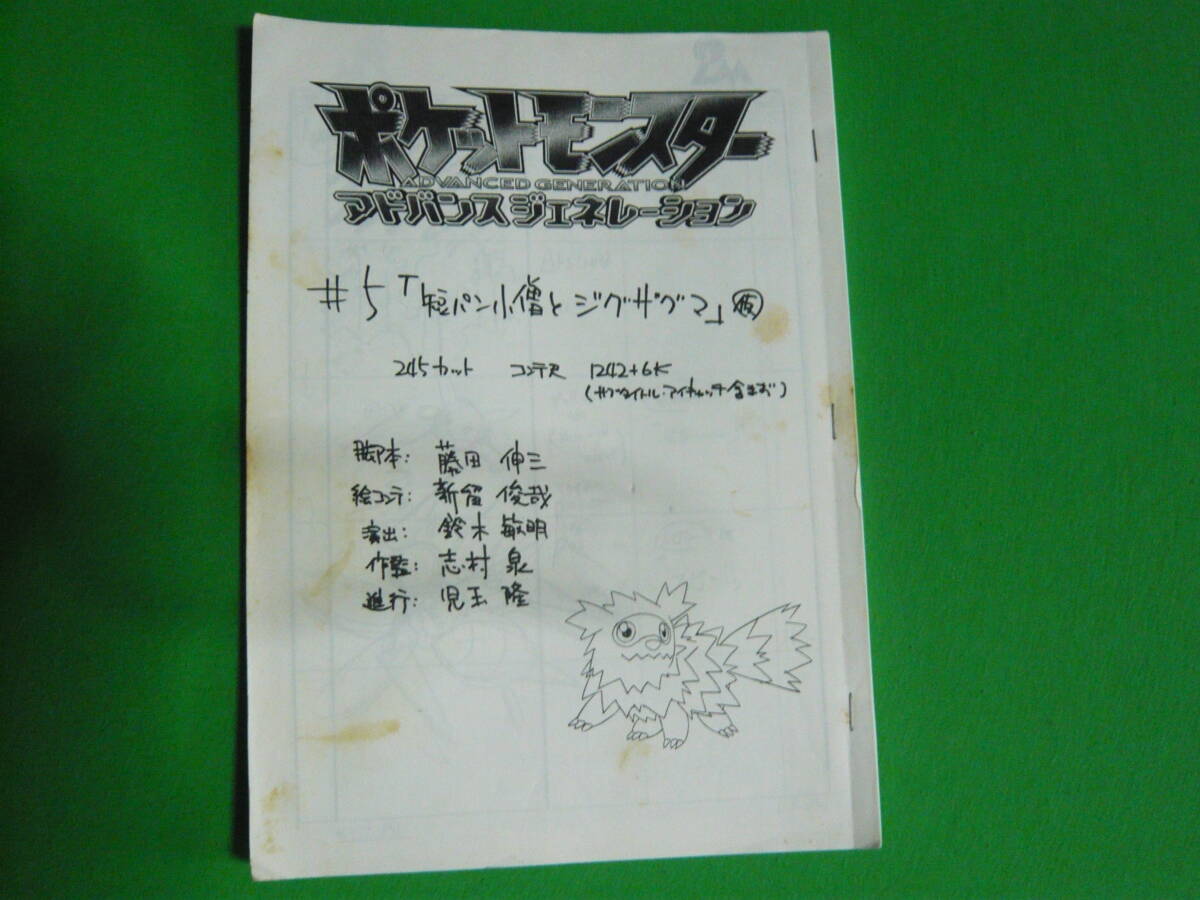 ポケットモンスター
ADVANCED GENERATION
アドバンスジェネレーション
#5「短パン小僧とジグザグマ」仮
245カット コンテ尺 1242+6K
(サブタイトル・アイキャッチ含まず)
脚本: 藤田 伸三
絵コンテ: 新留 俊哉
演出: 鈴木 敏明
作監: 志村 泉
進行: 児玉 隆